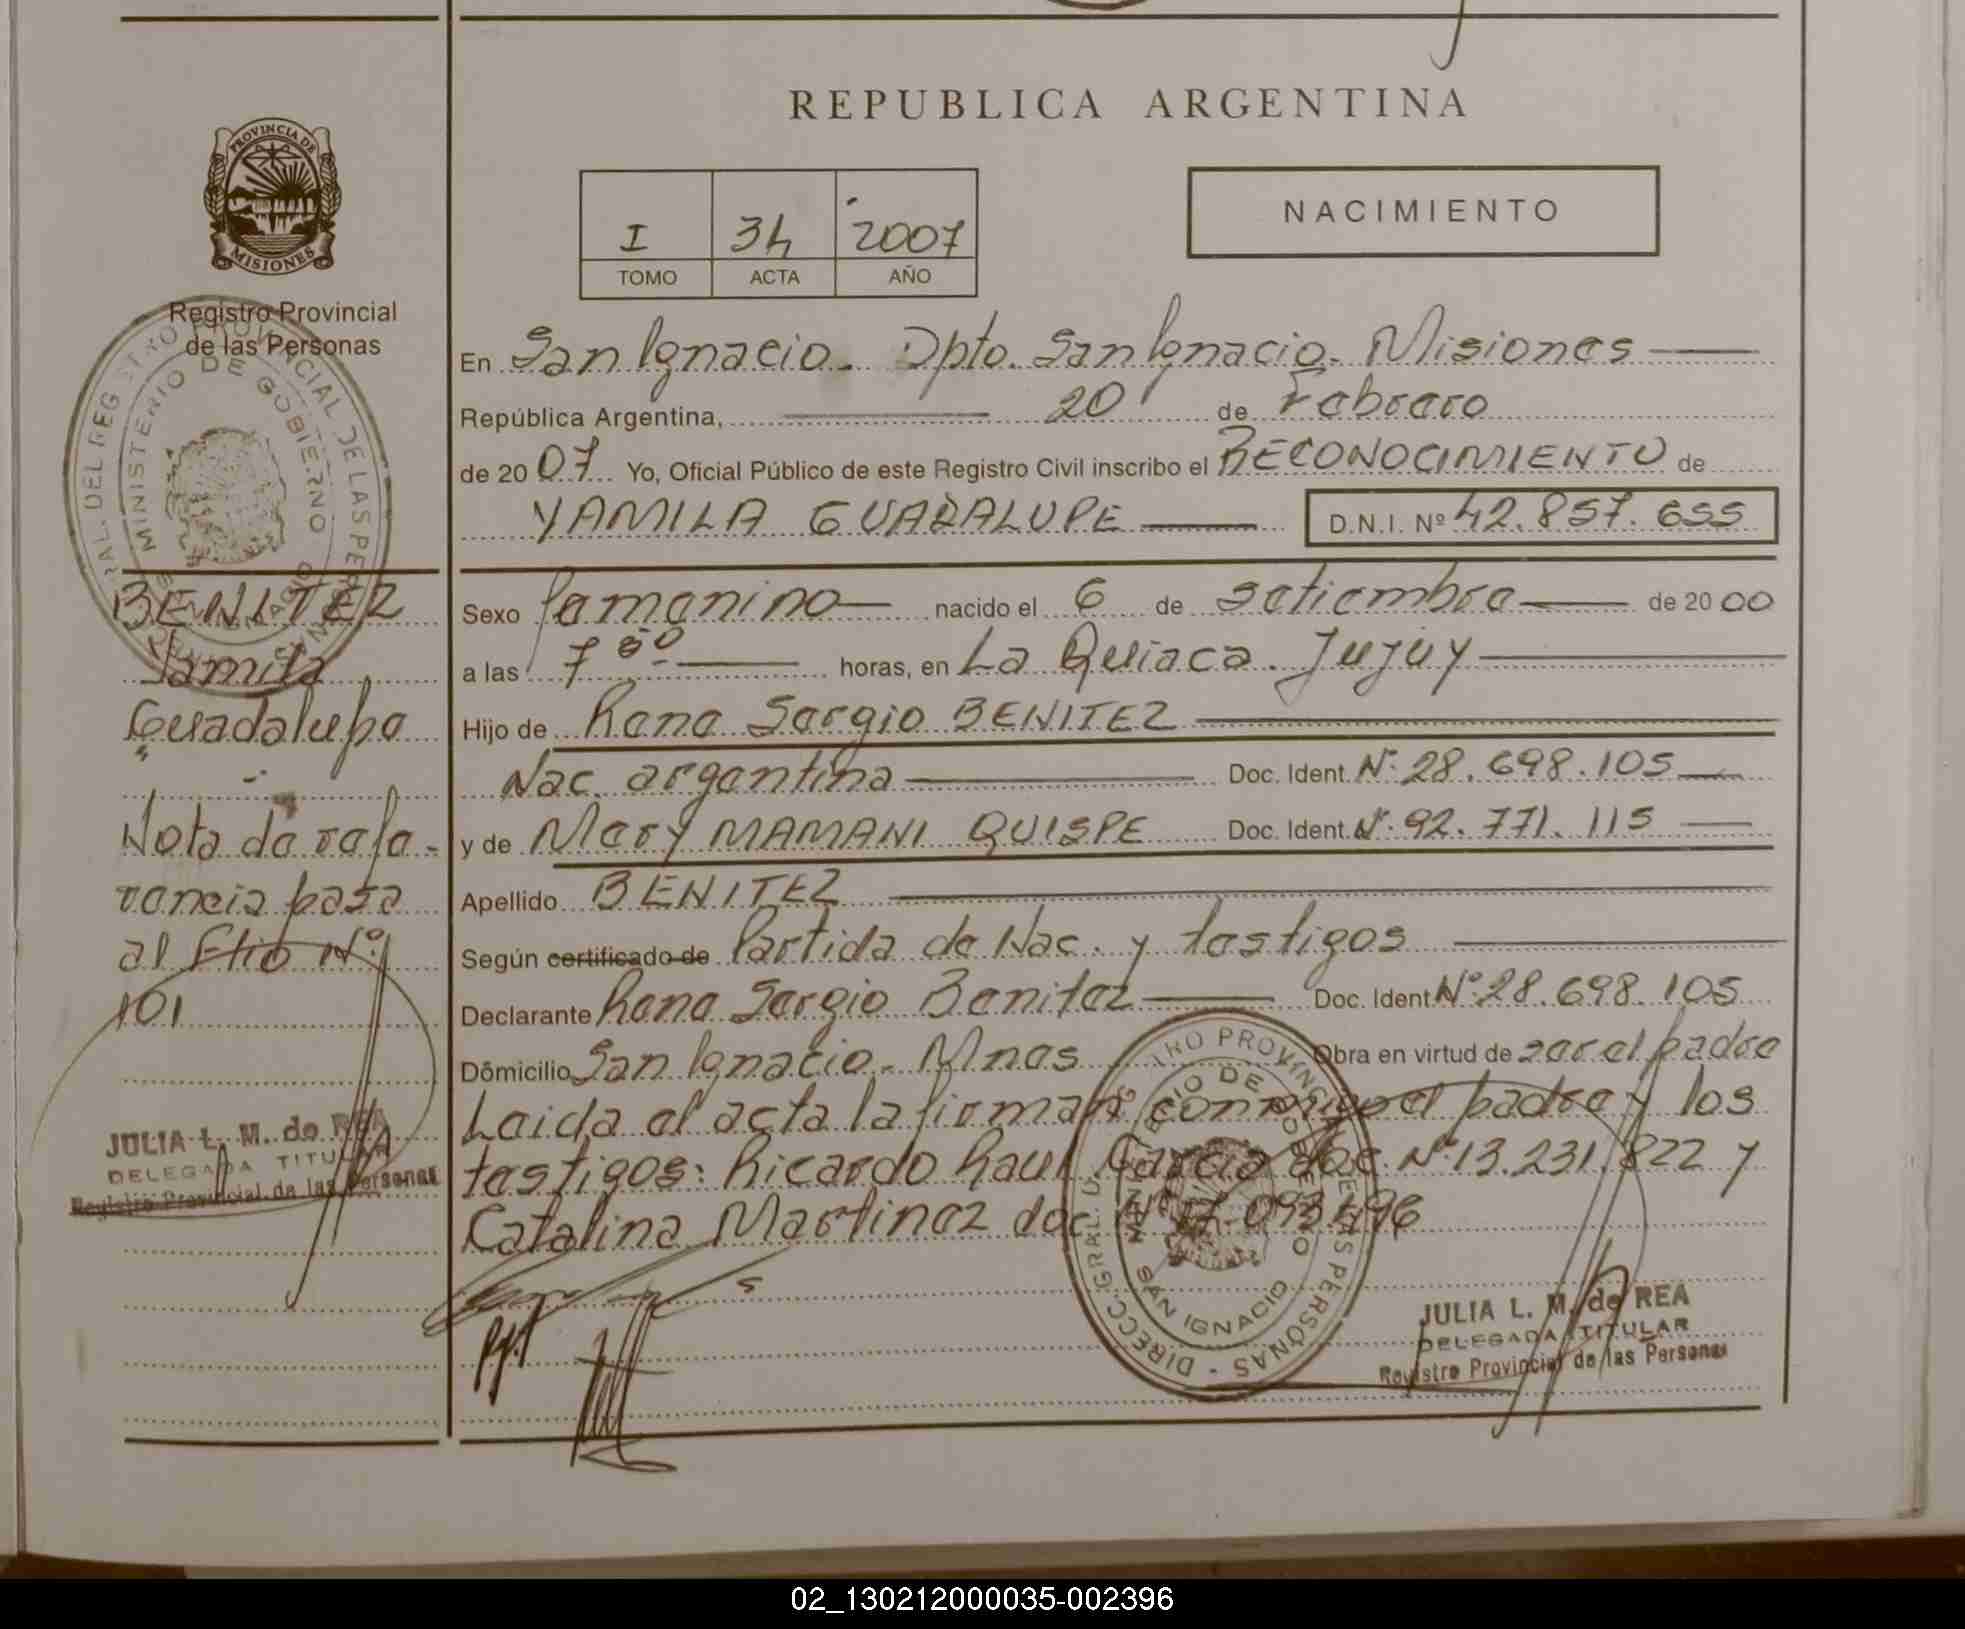 REPUBLICA ARGENTINA
PROVINCIA DE
MISIONES
Registro Provincial
de las Personas
I 34 2007
TOMO ACTA AÑO
NACIMIENTO
En San Ignacio. Dpto. San Ignacio. Misiones
República Argentina, 20 de Febrero
de 20 07 Yo, Oficial Público de este Registro Civil inscribo el RECONOCIMIENTO de
YAMILA GUADALUPE D.N.I. Nº 42.857.655
Sexo femenino nacido el 6 de setiembre de 20 00
a las 7 horas, en La Quiaca. Jujuy
Hijo de Rene Sergio BENITEZ
Nac. argentina Doc. Ident. Nº 28.698.105
y de Mery MAMANI QUISPE Doc. Ident. Nº 92.771.115
Apellido BENITEZ
Según certificado de Partida de Nac. y testigos
Declarante Rene Sergio Benitez Doc. Ident Nº 28.698.105
Domicilio San Ignacio. Mnes Obra en virtud de ser el padre
Leida el acta la firman conmigo el padre y los
testigos: Ricardo Raul Garcia doc. Nº 13.231.822 y
Catalina Martinez doc Nº 17.093.496
BENITEZ
Yamila
Guadalupe
Nota de refe-
rencia pasa
al Flio Nº
101
JULIA L. M. de REA
DELEGADA TITULAR
Registro Provincial de las Personas
DIRECC. GRAL. DEL REGISTRO PROVINCIAL DE LAS PERSONAS
MINISTERIO DE GOBIERNO
SAN IGNACIO
JULIA L. M. de REA
DELEGADA TITULAR
Registro Provincial de las Personas
02_130212000035-002396